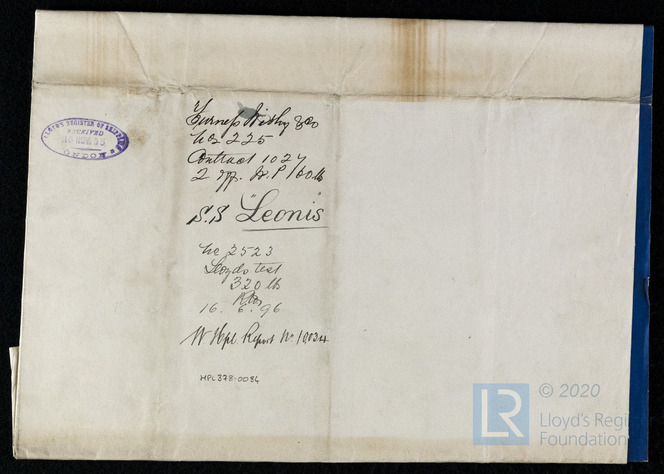 LLOYD'S REGISTER OF SHIPPING
RECEIVED
NOV. 95
LONDON
Furness Withy & Co
No 225
Contract 1027
2 W.P 160 lb
S.S "Leonis"
No 2523
Lloyds test
320 lb
16. 6. 96
W Hpl. Report No 10034
HPL378-0084
LR
© 2020
Lloyd's Regi
Foundation